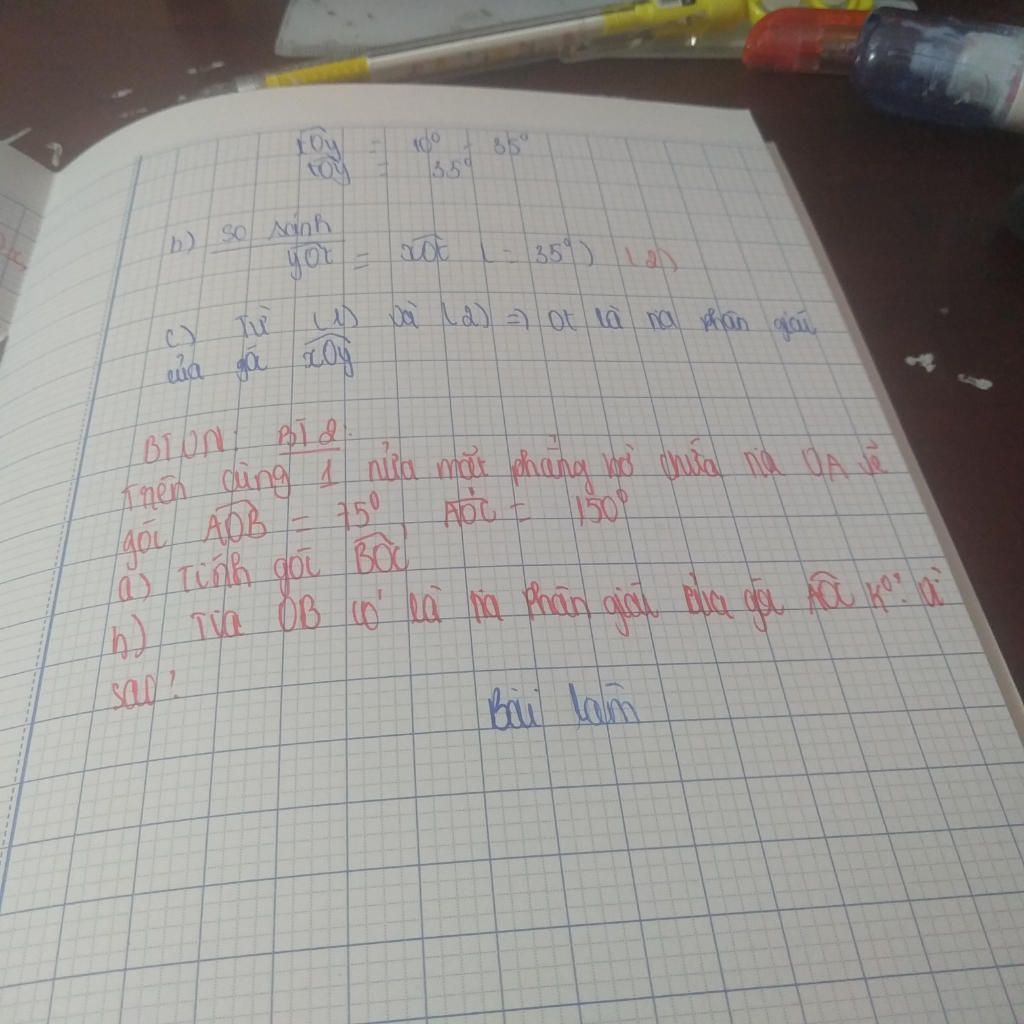 xOy = 70° - 35°
xOy = 35°
b) so sánh
yOt = xOt (= 35°) (2)
c) Từ (1) và (2) => Ot là tia phân giác
của góc xOy
BTVN: BT2.
Trên cùng 1 nửa mặt phẳng bờ chứa tia OA vẽ
góc AOB = 75° AOC = 150°
a) Tính góc BOC
b) Tia OB có là tia phân giác của góc AOC K°?
sao?
Bài làm